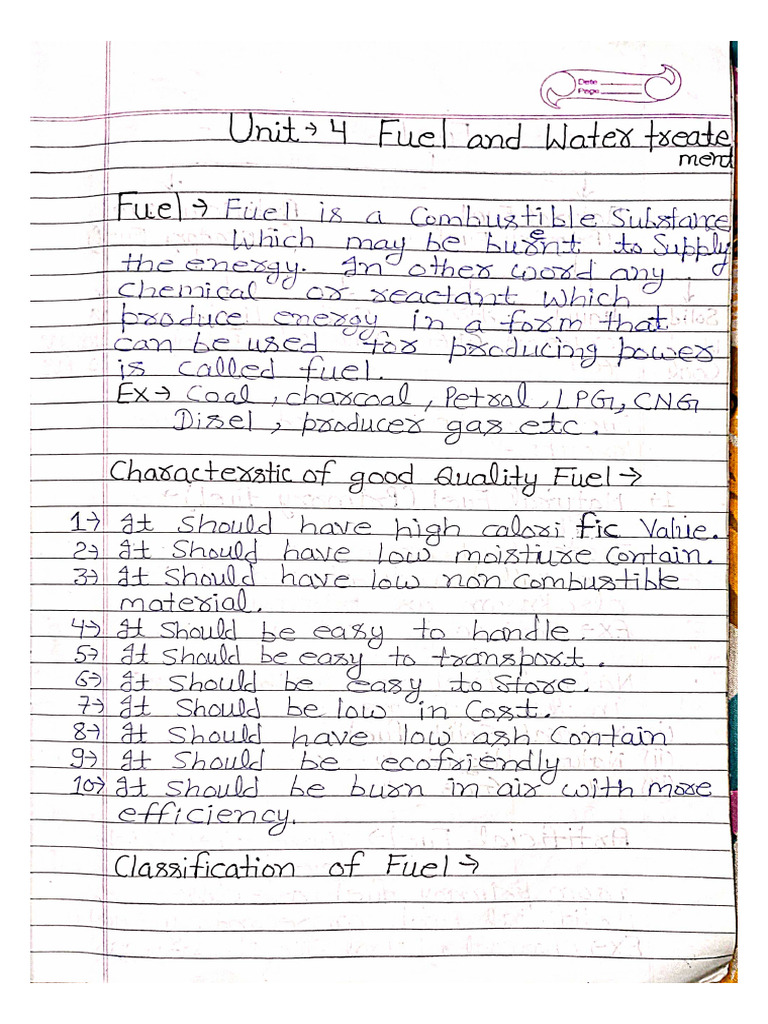 Date
Page
Unit → 4 Fuel and Water treate
ment
Fuel → Fuel is a Combustible Substance
which may be burent to Supply
the energy. In other word any
chemical or reactant which
produce energy in a form that
can be used for producing power
is called fuel.
Ex → Coal, charcoal, Petral, LPG, CNG
Disel, producer gas etc.
Characterstic of good Quality Fuel →
1→ It should have high calori fic Value.
2→ It Should have low moistiure Contain.
3→ It Should have low non combustible
material.
4→ It Should be easy to handle.
5→ It Should be easy to transport.
6→ It Should be easy to Store.
7→ It Should be low in Cost.
8→ It Should have low ash Contain
9→ It Should be ecofriendly
10→ It Should be burn in air with more
efficiency.
Classification of Fuel →